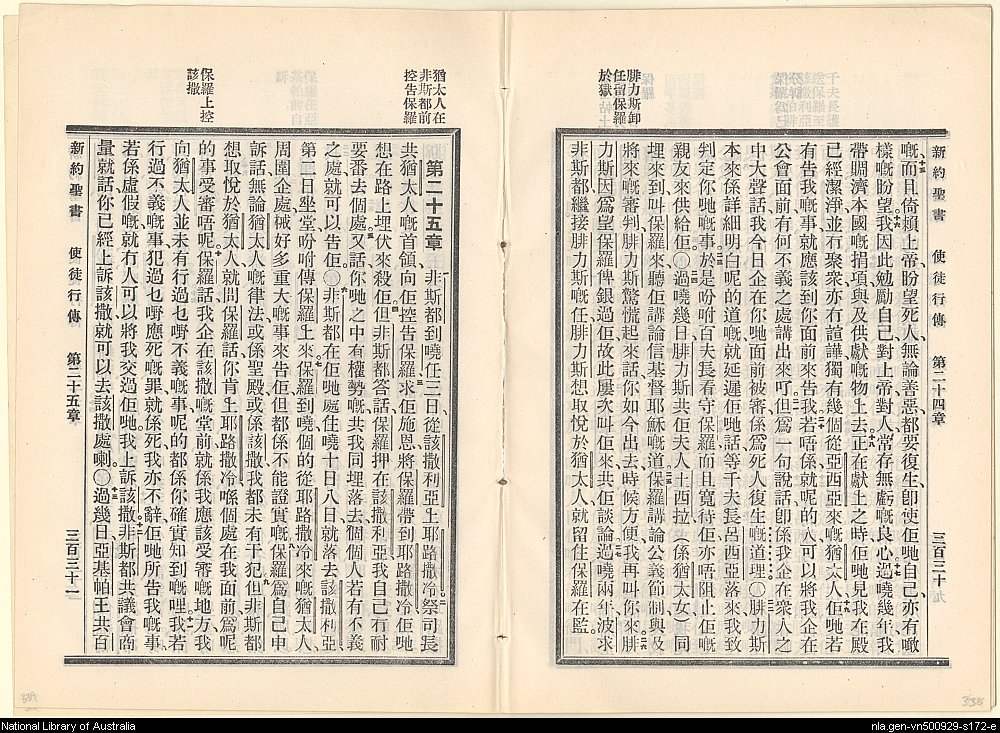 腓力斯卸
任留保羅
於獄
新約聖書 使徒行傳 第二十四章
嘅而且倚賴上帝盼望死人無論善惡都要復生卽使佢哋自己亦有噉
樣嘅盼望我因此勉勵自己對上帝對人常存無虧嘅良心過嘵幾年我
帶賙濟本國嘅捐項與及供獻嘅物上去正在獻上之時佢哋見我在殿
已經潔淨並冇聚衆亦冇諠譁獨有幾個從亞西亞來嘅猶太人佢哋若
有告我嘅事就應該到你面前來告我若唔係就呢的人可以將我企在
公會面前有何不義之處講出來吖但爲一句說話卽係我企在衆人之
中大聲話我今日企在你哋面前被審係爲死人復生嘅道理○腓力斯
本來係詳細明白呢的道嘅就延遲佢哋話等千夫長呂西亞落來我致
判定你哋嘅事於是吩咐百夫長看守保羅而且寬待佢亦唔阻止佢嘅
親友來供給佢○過嘵幾日腓力斯共佢夫人土西拉（係猶太女）同
埋來到叫保羅來聽佢講論信基督耶穌嘅道保羅講論公義節制與及
將來嘅審判腓力斯驚慌起來話你如今出去時候方便我再叫你來腓
力斯因爲望保羅俾銀過佢故此屢次叫佢來共佢談論過嘵兩年波求
非斯都繼接腓力斯嘅任腓力斯想取悅於猶太人就留住保羅在監
猶太人在
非斯都前
控告保羅
保羅上控
該撒
第二十五章 非斯都到嘵任三日從該撒利亞上耶路撒冷祭司長
共猶太人嘅首領向佢控告保羅求佢施恩將保羅帶到耶路撒冷佢哋
想在路上埋伏來殺佢但非斯都答話保羅押在該撒利亞我自己冇耐
要番去個處又話你哋之中有權勢嘅共我同埋落去個個人若有不義
之處就可以告佢○非斯都在佢哋處住嘵十日八日就落去該撒利亞
第二日坐堂吩咐傳保羅上來保羅到嘵個的從耶路撒冷來嘅猶太人
周圍企處械好多重大嘅事來告佢但都係不能證實嘅保羅爲自己申
訴話無論猶太人嘅律法或係聖殿或係該撒我都未有干犯但非斯都
想取悅於猶太人就問保羅話你肯上耶路撒冷喺個處在我面前爲呢
的事受審唔呢保羅話我企在該撒嘅堂前就係我應該受審嘅地方我
向猶太人並未有行過乜嘢不義嘅事呢的都係你確實知到嘅哩我若
行過不義嘅事犯過乜嘢應死嘅罪就係死我亦不辭佢哋所告我嘅事
若係虛假嘅就冇人可以將我交過佢哋我上訴該撒非斯都共議會商
量就話你已經上訴該撒就可以去該撒處喇○過幾日亞基帕王共百
新約聖書 使徒行傳 第二十五章 三百三十一
338
National Library of Australia
nla.gen-vn500929-s172-e